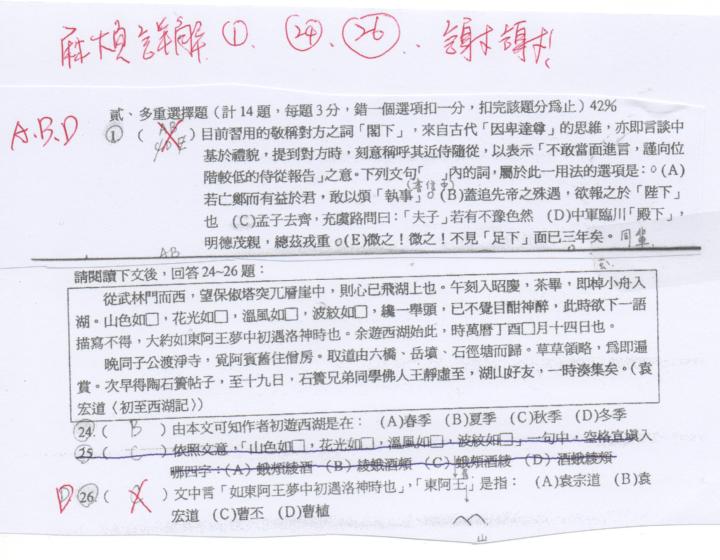 麻煩詳解 ①、㉔ ㉖.. 謝謝!
貳、多重選擇題（計14題，每題3分，錯一個選項扣一分，扣完該題分為止）42%
A.B.D
1 (  ) 目前習用的敬稱對方之詞「閣下」，來自古代「因卑達尊」的思維，亦即言談中
基於禮貌，提到對方時，刻意稱呼其近侍隨從，以表示「不敢當面進言，謹向位
階較低的侍從報告」之意。下列文句「　」內的詞，屬於此一用法的選項是：(A)
若亡鄭而有益於君，敢以煩「執事」。(B)蓋追先帝之殊遇，欲報之於「陛下」
也　(C)孟子去齊，充虞路問曰：「夫子」若有不豫色然　(D)中軍臨川「殿下」，
明德茂親，總茲戎重。(E)微之！微之！不見「足下」面已三年矣。同輩
AB
請閱讀下文後，回答24~26題：
從武林門而西，望保俶塔突兀層崖中，則心已飛湖上也。午刻入昭慶，茶畢，即棹小舟入
湖。山色如□，花光如□，溫風如□，波紋如□，纔一舉頭，已不覺目酣神醉，此時欲下一語
描寫不得，大約如東阿王夢中初遇洛神時也。余遊西湖始此，時萬曆丁酉□月十四日也。
晚同子公渡淨寺，覓阿賓舊住僧房。取道由六橋、岳墳、石徑塘而歸。草草領略，為即遍
賞。次早得陶石簣帖子，至十九日，石簣兄弟同學佛人王靜虛至，湖山好友，一時湊集矣。(袁
宏道〈初至西湖記〉)
24. ( B ) 由本文可知作者初遊西湖是在：　(A)春季　(B)夏季　(C)秋季　(D)冬季
25 ( C ) 依照文意，「山色如□，花光如□，溫風如□，波紋如□」一句中，空格宜填入
哪四字：(A) 蛾頰綾酒 (B) 綾蛾酒頰 (C) 蛾頰酒綾 (D) 酒蛾綾頰
D 26 (  ) 文中言「如東阿王夢中初遇洛神時也」，「東阿王」是指：　(A)袁宗道　(B)袁
宏道　(C)曹丕　(D)曹植
山